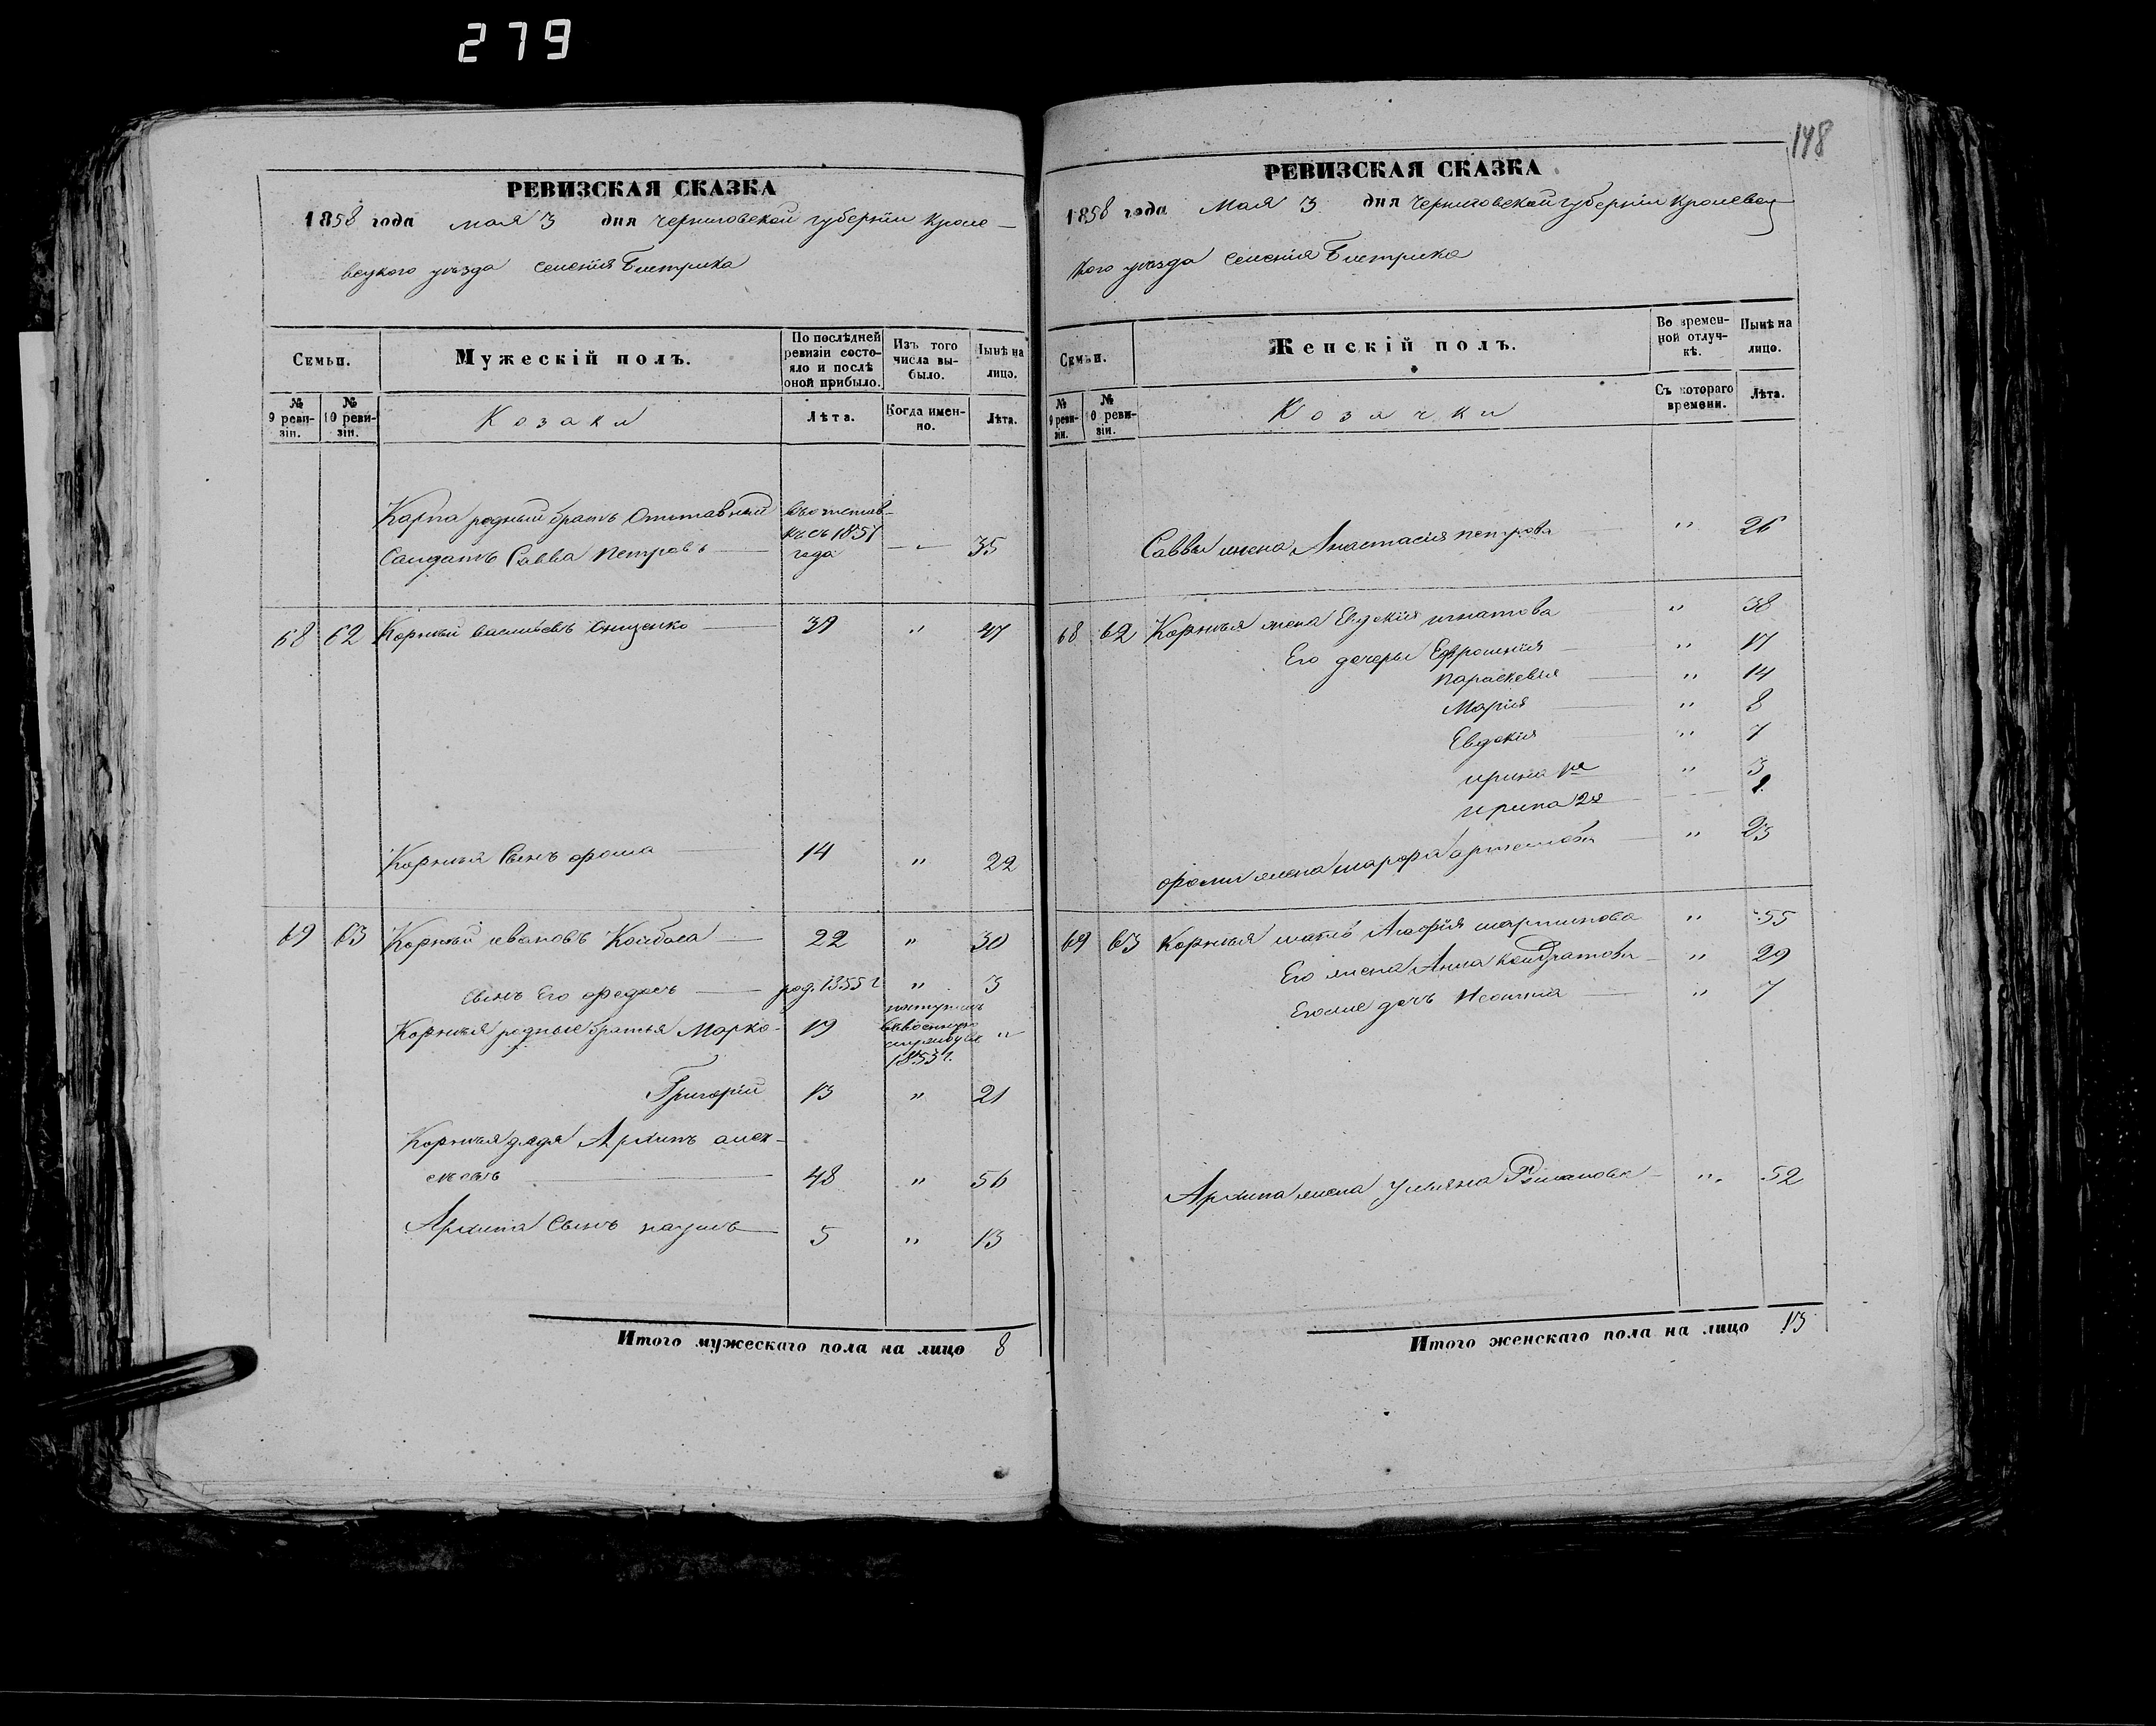 279
148
РЕВИЗСКАЯ СКАЗКА
1858 года мая 3 дня Черниговской губернии Кроле-
вецкого уезда селения Быстрика
Семьи.
Мужескій полъ.
По послѣдней ревизіи состояло и послѣ оной прибыло.
Изъ того числа выбыло.
Нынѣ на лицо.
№ 9 ревизіи.
№ 10 ревизіи.
Козаки
Лѣта.
Когда именно.
Лѣта.
Карпа родный братъ Отставный въ отстав-
Салдатъ Савва Петровъ къ съ 1857 года 35
68 62 Корнѣй Васильевъ Онищенко 39 " 47
Корнѣя Сынъ Фома 14 " 22
69 63 Корнѣй Ивановъ Койбаса 22 " 30
Сынъ Его Федосъ род. 1855 г " 3
Корнѣя родные братья Марко 19 поступилъ въ военную службу въ 1853 г. "
Григорій 13 " 21
Корнѣя дядя Архипъ Алек-
сѣевъ 48 " 56
Архипа Сынъ Наумъ 5 " 13
Итого мужескаго пола на лицо 8
РЕВИЗСКАЯ СКАЗКА
1858 года Мая 3 дня Черниговской губерніи Кролевец-
кого уезда селения Быстрика
Семьи.
Женскій полъ.
Во временной отлучкѣ.
Нынѣ на лицо.
№ 9 ревизіи.
№ 10 ревизіи.
Козачки
Съ котораго времени.
Лѣта.
Саввы жена Анастасія Петрова " 26
68 62 Корнѣя жена Евдокія Игнатова " 38
Его дочеры Ефросинія " 17
Параскевия " 14
Марія " 8
Евдокія " 7
Ирина 1я " 3
Ирина 2я 1
Фомы жена Марфа Артемова " 23
69 63 Корнѣя мать Агафія Мартинова " 55
Его жена Анна Кондратова " 29
Его же дочь " 7
Архипа жена Ульяна Романова " 52
Итого женскаго пола на лицо 13